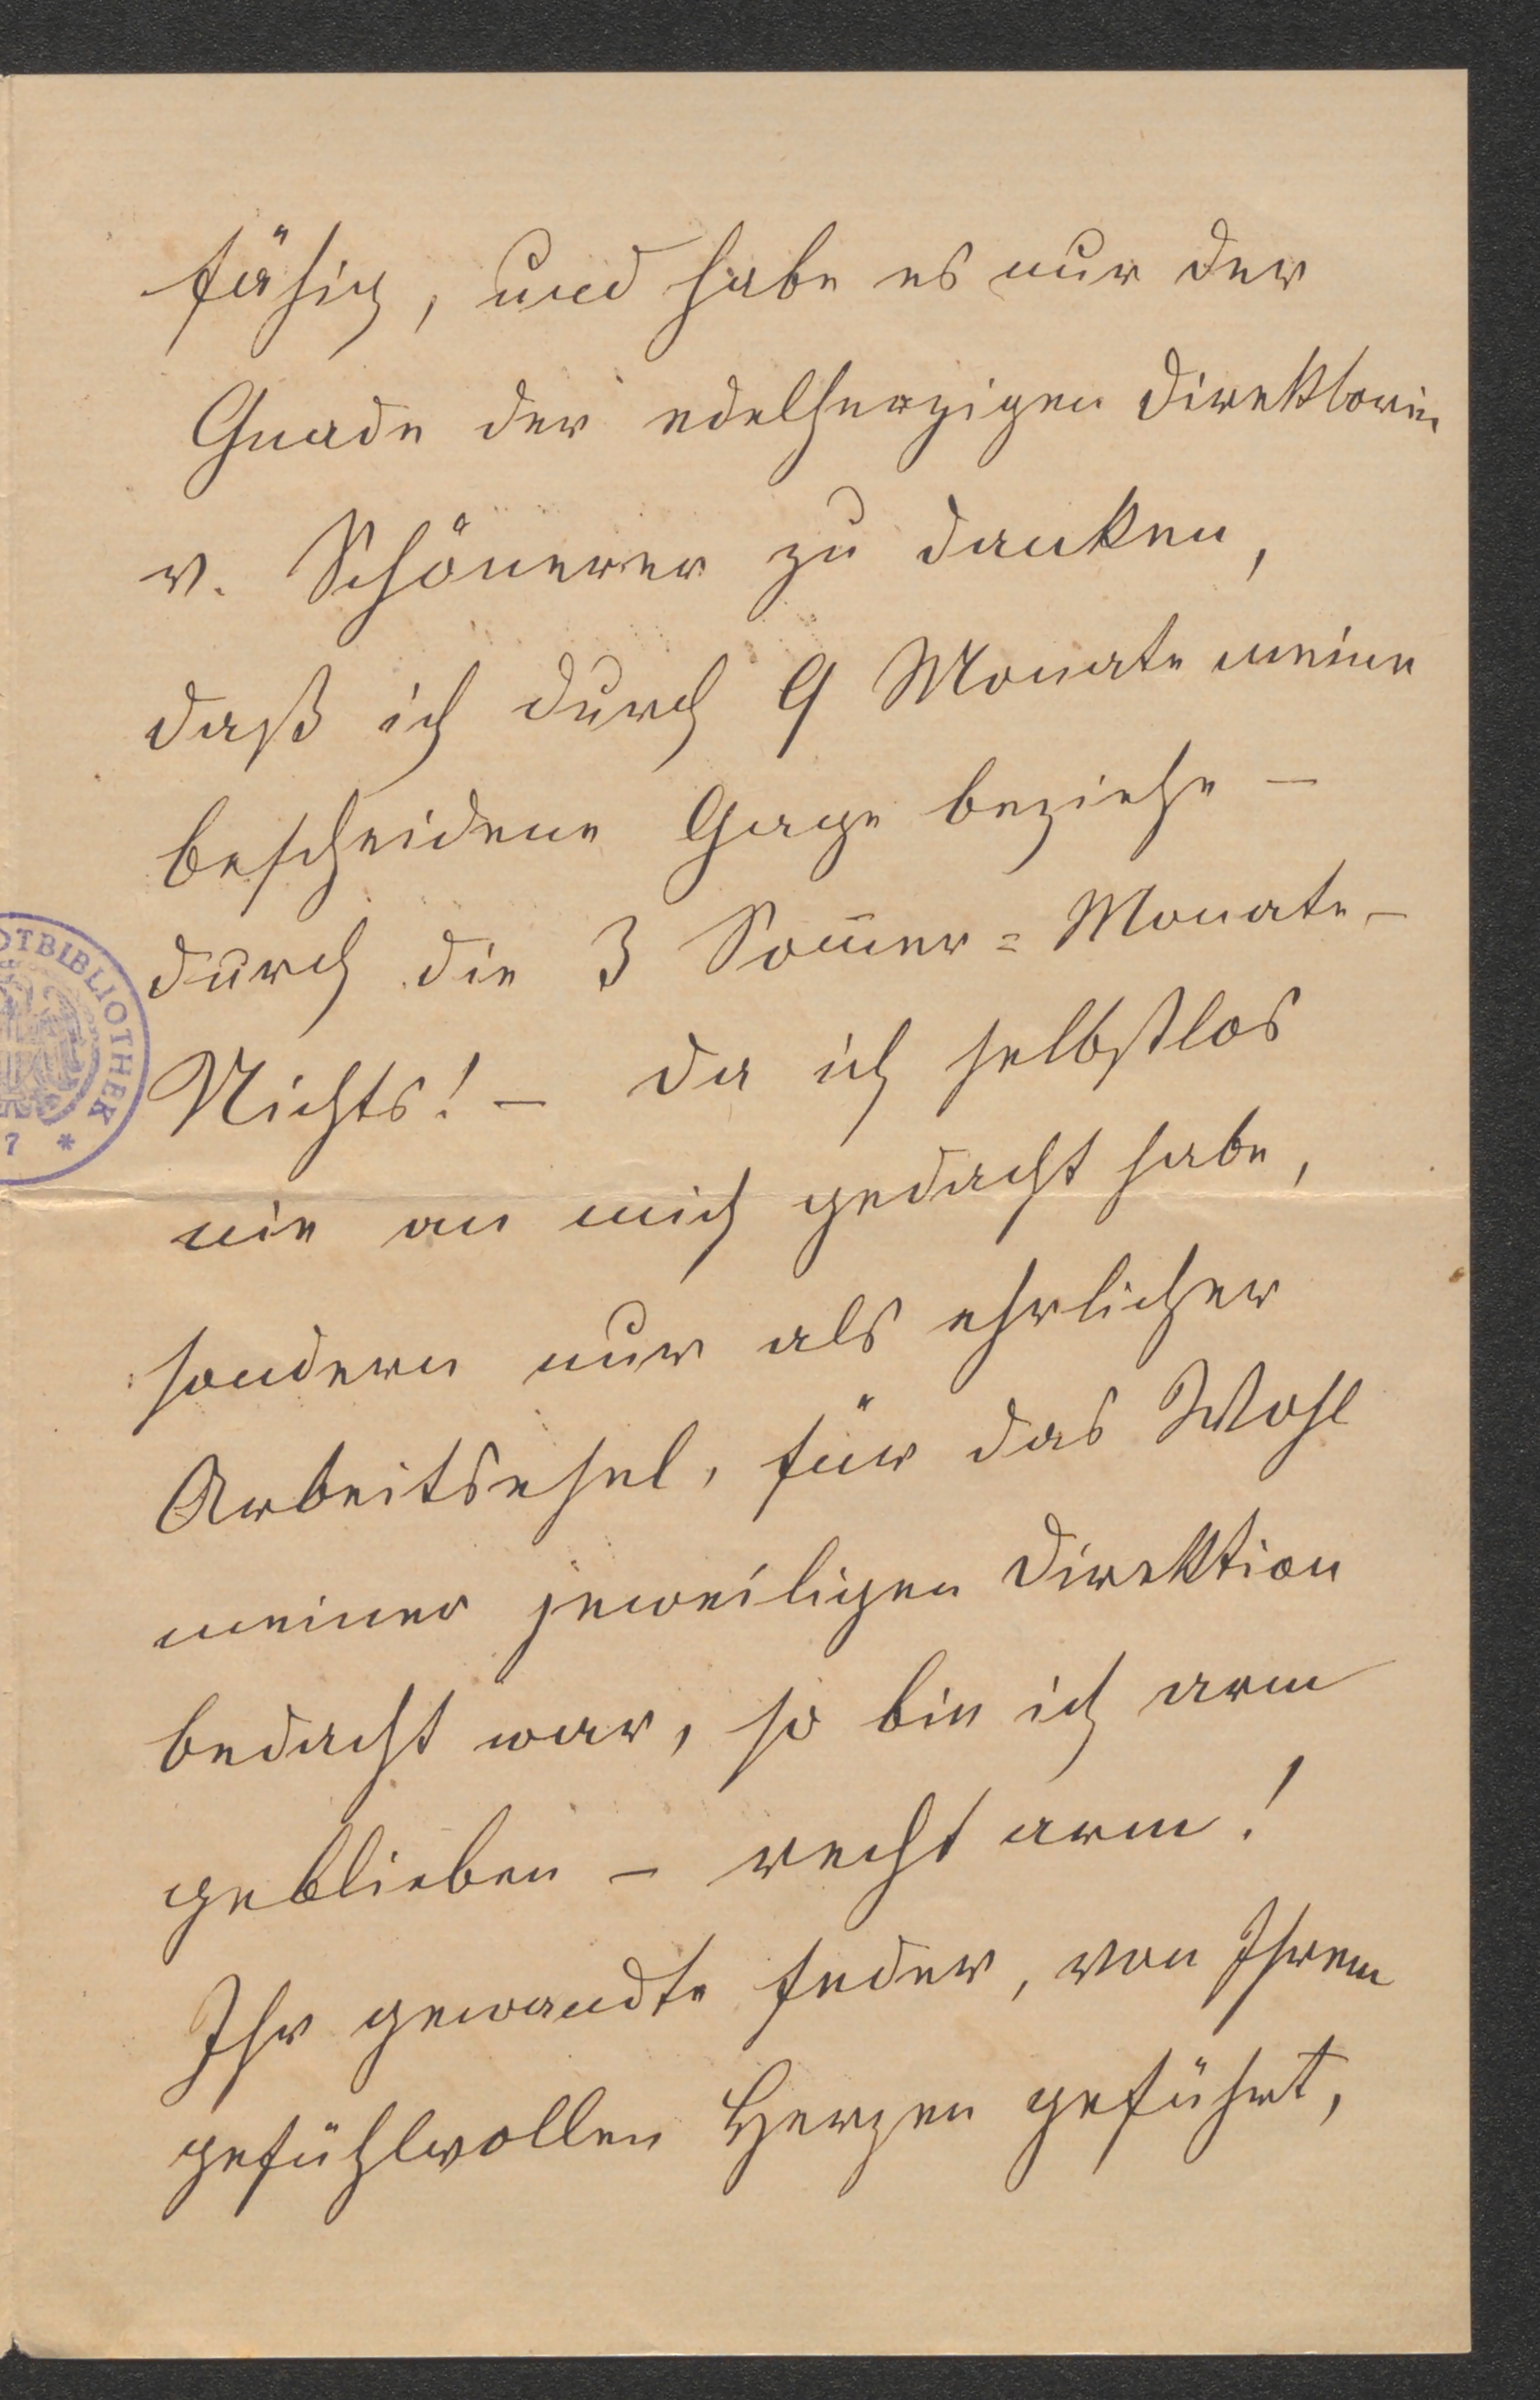 fähig, und habe es nur der
Gnade der edelherzigen Direktorin
v. Schönerer zu danken,
daß ich durch 9 Monate meine
bescheidene Gage beziehe –
durch die 3 Som̅er=Monate –
Nichts! – da ich selbstlos
nie an mich gedacht habe,
sondern nur als ehrlicher
Arbeitsesel, für das Wohl
meiner jeweiligen Direktion
bedacht war, so bin ich arm
geblieben – recht arm!
Ihr gewandte Feder, von Ihrem
gefühlvollen Herzen geführt,
OTBIBLIOTHEK
7 *